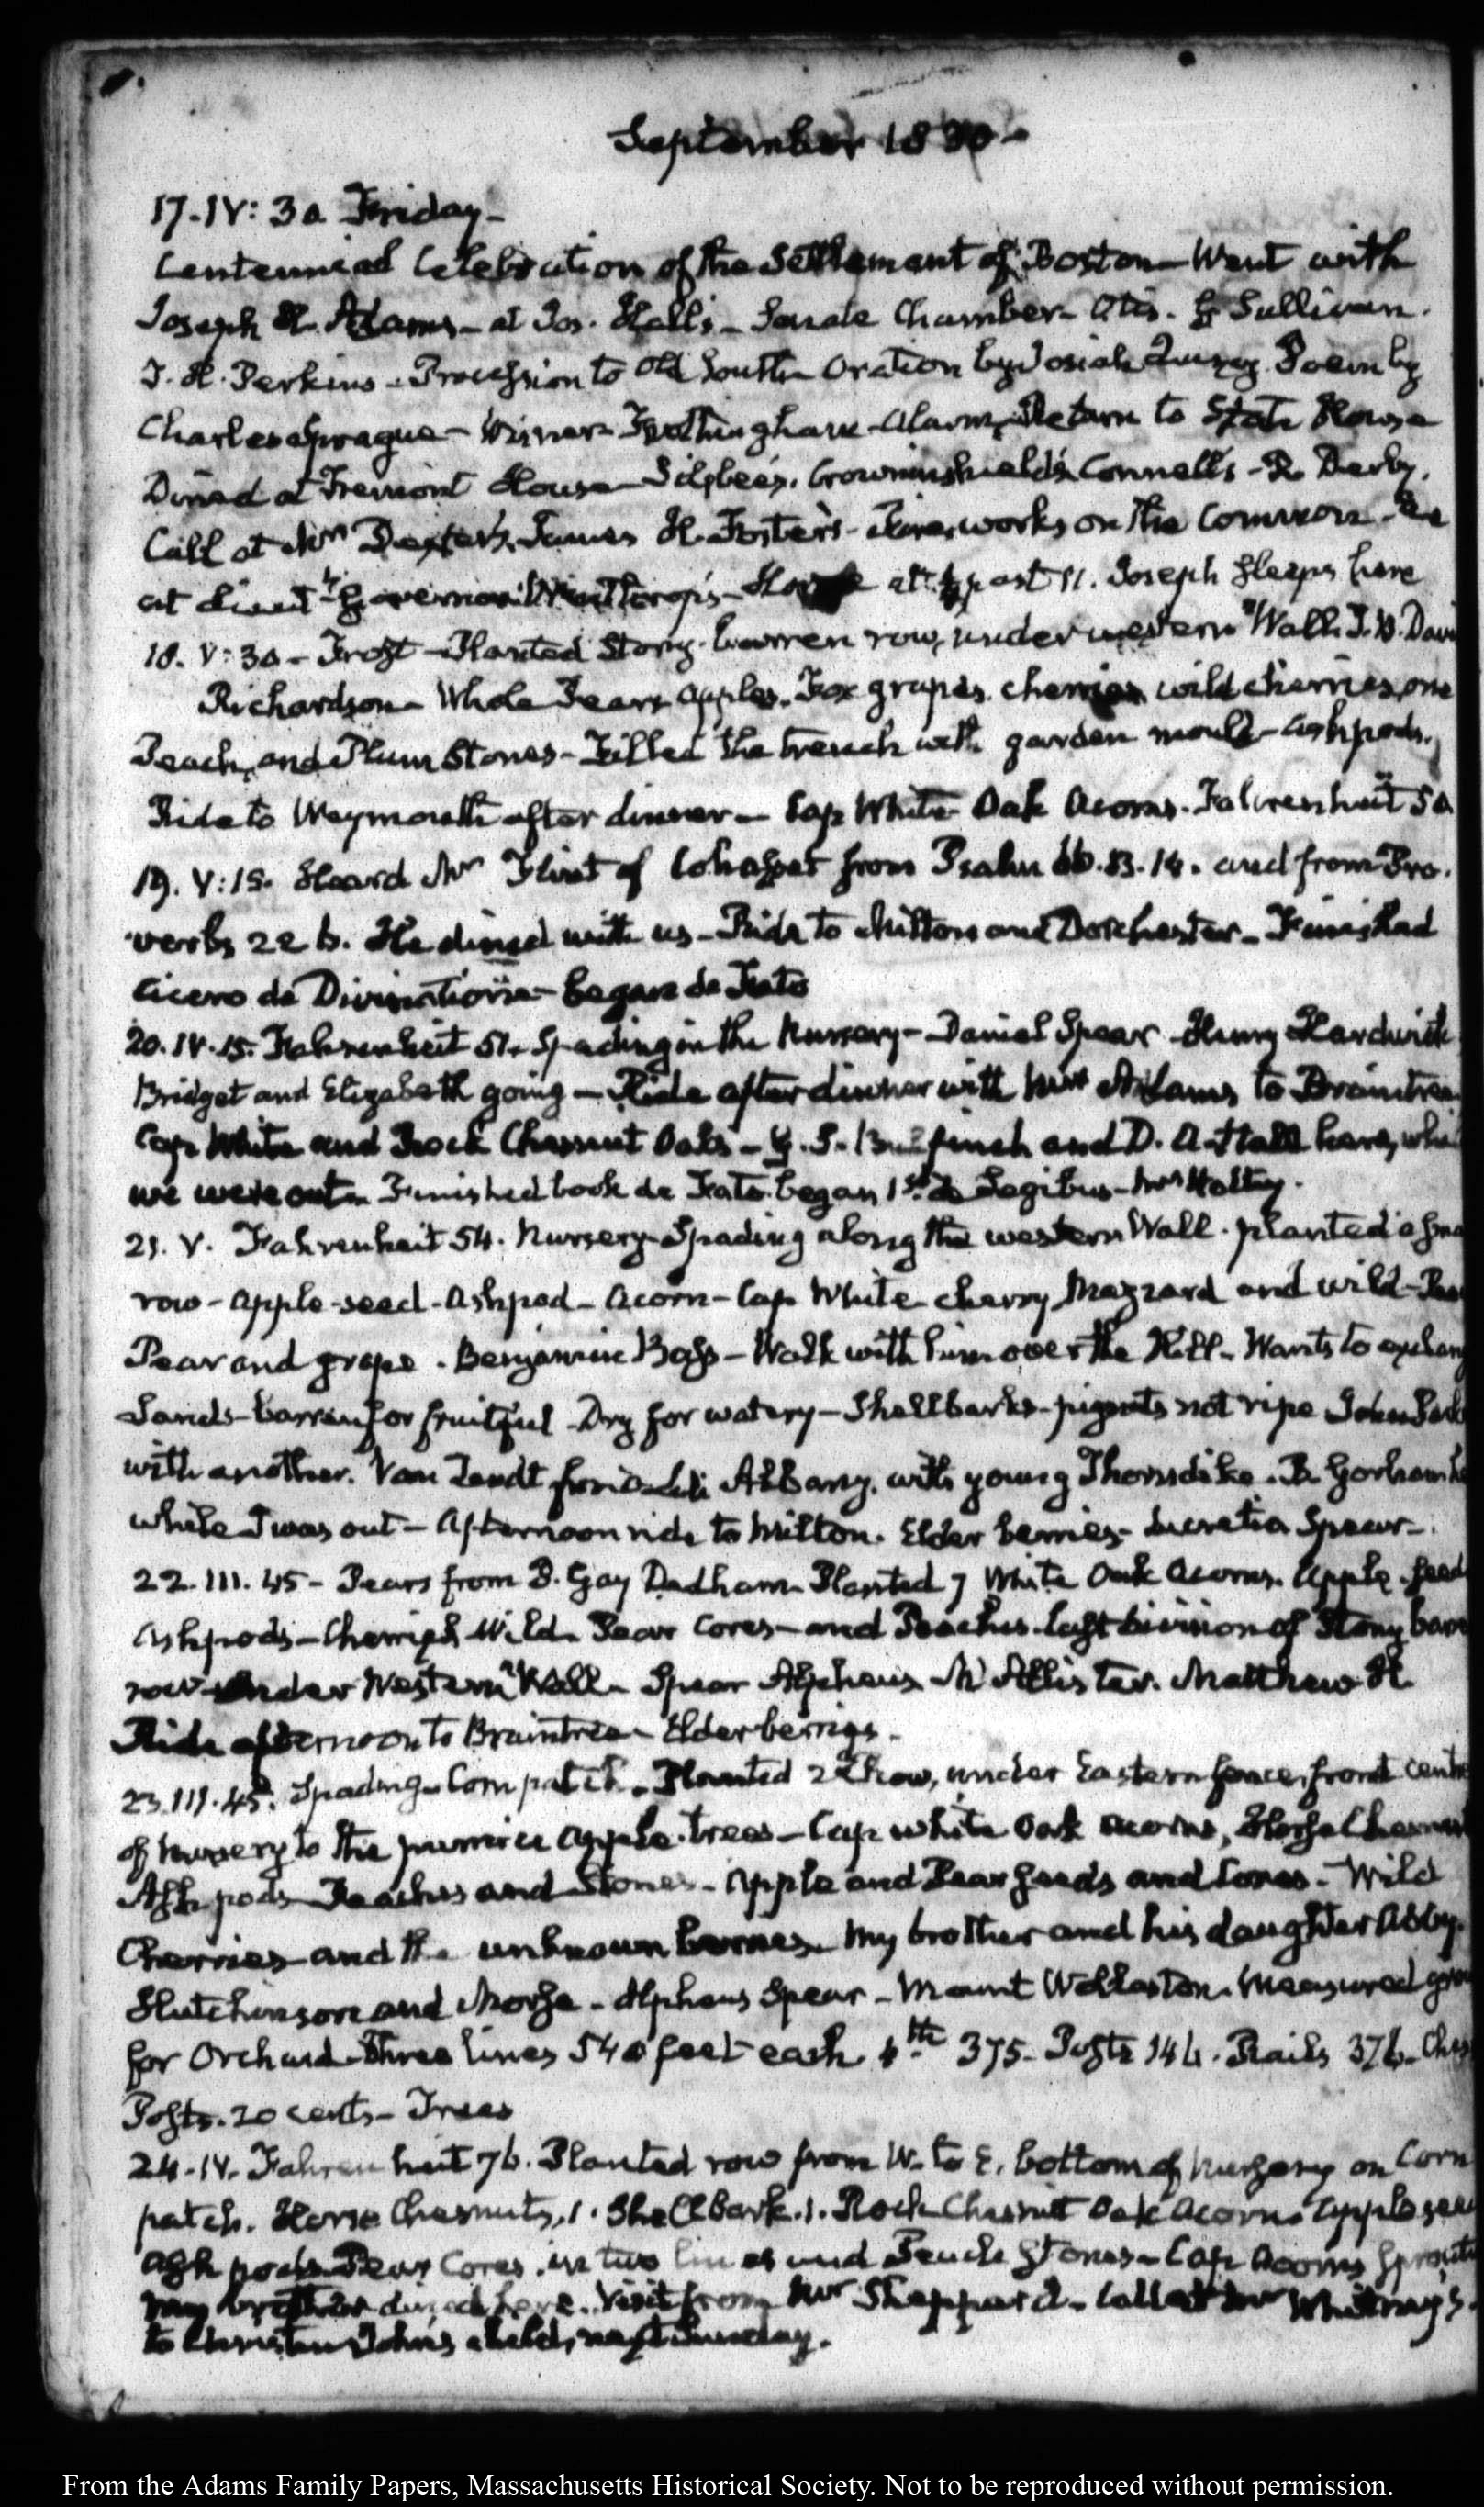 September 1830-
17. IV: 30 Friday-
Centennial Celebration of the Settlement of Boston- Went with
Joseph H. Adams- at Jos. Hall's- Senate Chamber- Otis. G Sullivan.
T. H. Perkins- Procession to Old South- Oration by Josiah Quincy. Poem by
Charles Sprague- Frothingham- Alarm. Return to State House
Dined at Tremont House- Silsbee's. Crowninshield's Connell's- R Derby.
Call at Mrs Dexter's. James H. Foster's- Fireworks on the Common-
at Lieut. Governor Winthrop's- Home at ½ past 11. Joseph Sleeps here
18. V: 30- Frost- Planted Stony-barren row, under western Wall. J. B. Davi
Richardson- Whole Pears apples. Fox grapes. cherries wild cherries, one
Peach, and Plum Stones- Filled the trench with garden mould- ashpods.
Ride to Weymouth after dinner- Cap White Oak Acorns. Fahrenheit 50
19. V: 15. Heard Mr Flint of Cohasset from Psalm 66. 13. 14. and from Pro-
verbs 22 6. He dined with us- Ride to Milton and Dorchester- Finished
Cicero de Divinatione- began de Fato
20. IV. 15. Fahrenheit 51. Spading in the Nursery- Daniel Spear- Henry Hardwick
Bridget and Elizabeth going- Ride after dinner with Mrs Adams to Braintree
Cap White and Rock Chesnut Oaks- G. S. Bulfinch and D. A. Hall here, whi
we were out- Finished book de Fato. began 1st de Legibus- Mrs
21. V. Fahrenheit 54. Nursery- Spading along the western Wall. planted a
row- apple-seed- Ashpod- Acorn- Cap White- cherry, Mazzard and wild-
Pear and grape. Benjamin Bass- Walk with him over the Hill- Wants to exchang
Lands- barren for fruitful- Dry for watery- Shellbarks- pignuts not ripe John
with another. Van Zandt from Albany. with young Thorndike. B. Gorham
while I was out- Afternoon ride to Milton. Elder berries- Lucretia Spear-
22. III. 45- Pears from B. Gay Dedham- Planted 7 White Oak Acorns. Apple-seed
Ashpods- Cherries Wild- Pear Cores- and Peaches- last division of Stony barr
row under Western Wall- Spear Alpheus- McAllister. Matthew H.
Ride afternoon to Braintree- Elderberries.
23. III. 45. Spading- Corn patch- Planted 2d row, under Eastern fence, front cent
of Nursery to the apple-trees- Cap white Oak acorns, Horse Chesnut
Ash pods- Peaches and Stones- Apple and Pear seeds and Cores- Wild
Cherries- and the unknown berries- My brother and his daughter Abby.
Hutchinson and Morse- Alpheus Spear- Mount Wollaston. Measured gro
for Orchard. Three lines 540 feet each 4th 375- Posts 146. Rails 376-
Posts. 20 cents- Trees
24. IV. Fahrenheit 76. Planted row from W. to E. bottom of Nursery on Corn
patch. Horse Chesnuts, 1. Shellbark. 1. Rock Chesnut Oak Acorns Apple see
Ash pods- Pear Cores. in two lines and Peach Stones- Cap Acorns Sprout
My brother dined here. Visit from Mr Sheppard- Call at Mr Whitney's
to Christen John's child, next Sunday.
From the Adams Family Papers, Massachusetts Historical Society. Not to be reproduced without permission.